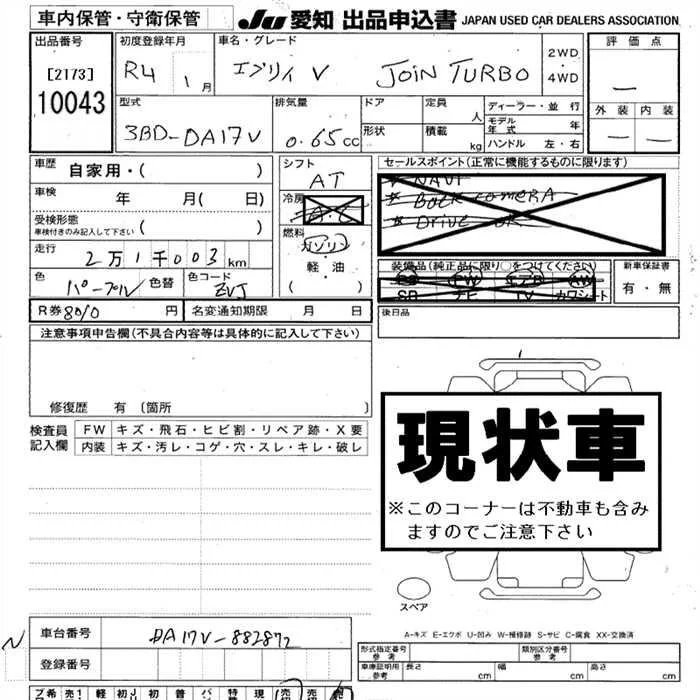 車内保管・守衛保管
JU 愛知 出品申込書 JAPAN USED CAR DEALERS ASSOCIATION
出品番号
[2173]
10043
初度登録年月
R4 1月
車名・グレード
エブリィ V JOIN TURBO
2WD
・
4WD
評価点
—
外装 内装
— —
型式
3BD-DA17V
排気量
0.65cc
ドア
定員
人
形状
積載
kg
ディーラー・並行
モデル年式 年
ハンドル 左・右
車歴 自家用・( )
車検 年 月( 日)
受検形態
車検付きのみ記入して下さい ( )
走行 2万1千003km
色 パープル 色替
色コード ZVJ
R券 8010 円
名変通知期限 月 日
シフト
AT
冷房
A.C
燃料
ガソリン
・
軽油
( )
セールスポイント(正常に機能するものに限ります)
* NAVI
* Back camera
* Drive
装備品(純正品に限り○をつけてください)
PS PW エアB AW
SR ナビ TV カワシート
新車保証書
有・無
後日品
注意事項申告欄(不具合内容等は具体的に記入して下さい)
修復歴 有 〔箇所 〕
検査員記入欄
FW キズ・飛石・ヒビ割・リペア跡・X要
内装 キズ・汚レ・コゲ・穴・スレ・キレ・破レ
現状車
※このコーナーは不動車も含み
ますのでご注意下さい
スペア
A-キズ E-エクボ U-凹み W-補修跡 S-サビ C-腐食 XX-交換済
N
車台番号 DA17V-882872
登録番号
形式指定番号 参考
類別区分番号 参考
車庫証明用 参考 長さ cm 幅 cm 高さ cm